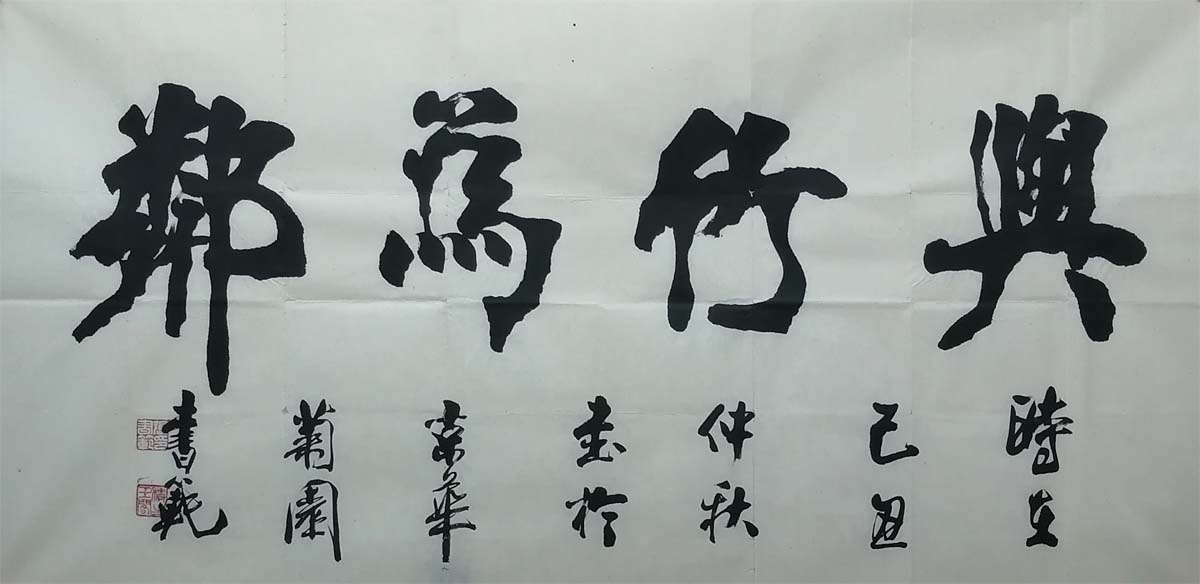 與竹為鄰
時在
己丑
仲秋
書於
京華
菊園
書範